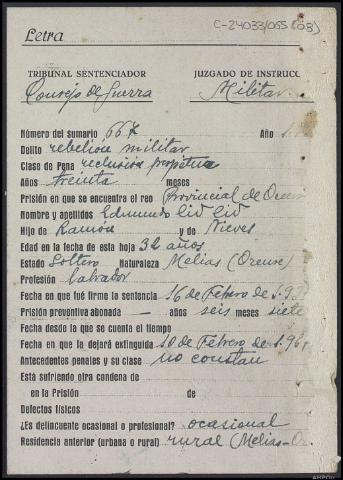 C-24033/055 (03)
Letra
TRIBUNAL SENTENCIADOR
JUZGADO DE INSTRUCC
Consejo de Guerra
Militar
Número del sumario 667 Año
Delito rebelion militar
Clase de Pena reclusión perpetua
Años treinta meses
Prisión en que se encuentra el reo Provincial de Oren
Nombre y apellidos Edmundo Cid Cid
Hijo de Ramón y de Nieves
Edad en la fecha de esta hoja 32 años
Estado Soltero Naturaleza Melias (Orense)
Profesión labrador
Fecha en que fué firme la sentencia 16 de Febrero de 193
Prisión preventiva abonada — años seis meses siete
Fecha desde la que se cuenta el tiempo
Fecha en que la dejará extinguida 10 de Febrero de 196
Antecedentes penales y su clase no constan
Está sufriendo otra condena de
en la Prisión de
Defectos físicos
¿Es delincuente ocasional o profesional? ocasional
Residencia anterior (urbana o rural) rural (Melias-Or
AHPOU